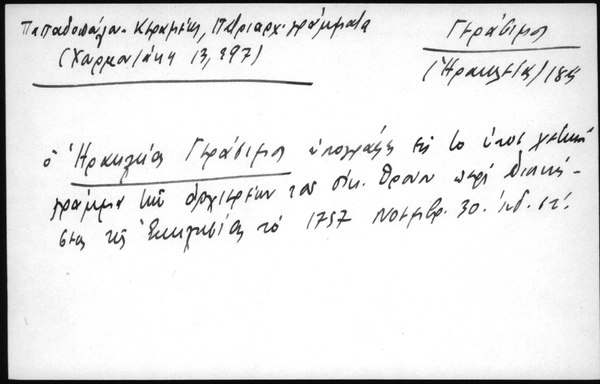 Παπαδοπούλου-Κεραμέως, Πατριαρχ. γράμματα
(Χαρμονιάκη 13, 297)
Γεράσιμος
(Ἡρακλείας) 18ς
ὁ Ἡρακλείας Γεράσιμος ὑπογράφει εἰς τὸ
γράμμα τῶν ἀρχιερέων τοῦ οἰκ. θρόνου περὶ διοικήσεως
τῆς Ἐκκλησίας τὸ 1757 Νοεμβρ. 30. ἰνδ. στ΄.